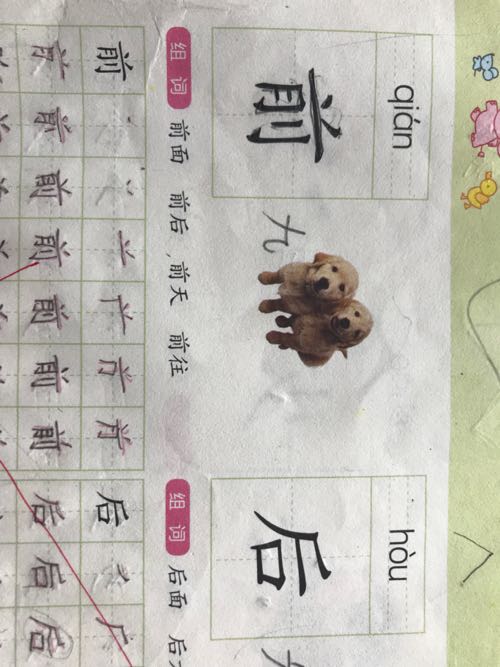 qián
前
九
组词 前面 前后，前天 前往
前
前 前 前 前 前 前 前
hòu
后
组词 后面 后
后
后 后 后